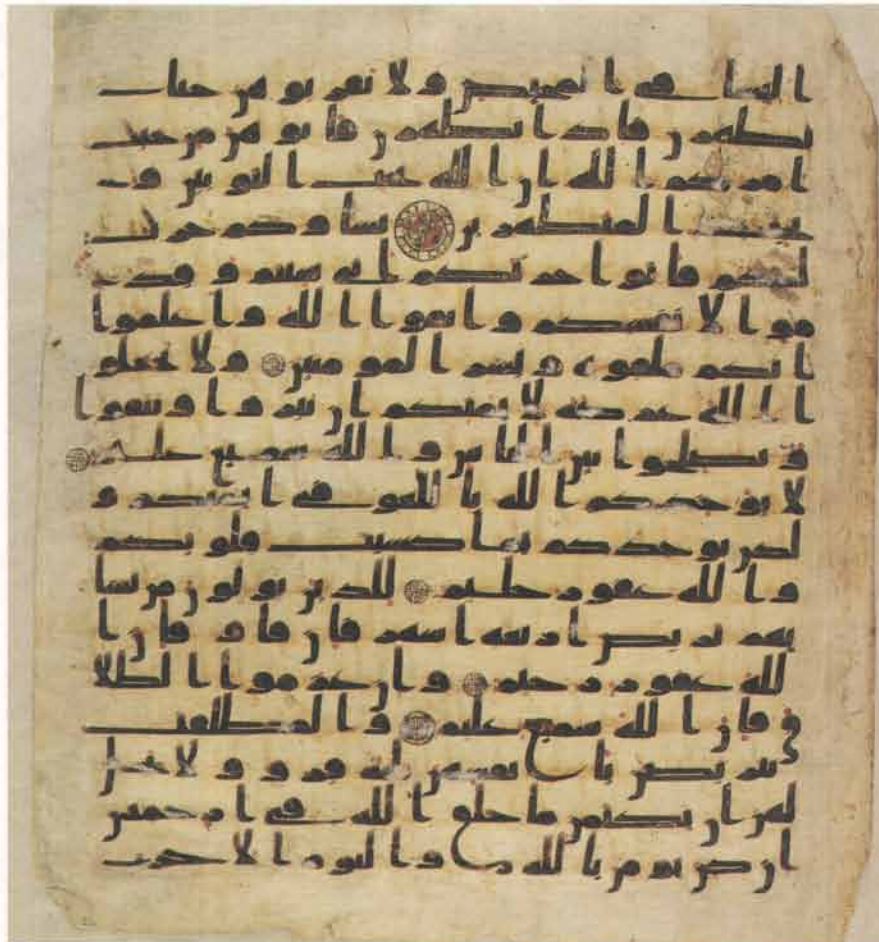 النسا في المحيض ولا تقربوهن حتى
يطهرن فاذا تطهرن فاتوهن من حيث
امركم الله ان الله يحب التوبين و
يحب المتطهرين نساوكم حرث
لكم فاتوا حرثكم انى شيتم وقد
موا لانفسكم واتقوا الله واعلموا
انكم ملقوه وبشر المومنين ولا تجعلو
ا الله عرضة لايمنكم ان تبروا وتتقوا
وتصلحوا بين الناس والله سميع عليم
لا يواخذكم الله باللغو في ايمنكم و
لكن يواخذكم بما كسبت قلوبكم
والله غفور حليم للذين يولون من نسا
يهم تربص اربعة اشهر فان فاو فان ا
لله غفور رحيم وان عزموا الطلا
ق فان الله سميع عليم والمطلقت
يتربصن بانفسهن ثلثة قرو ولا يحل
لهن ان يكتمن ما خلق الله في ارحمهن
ان كن يومن بالله واليوم الاخر